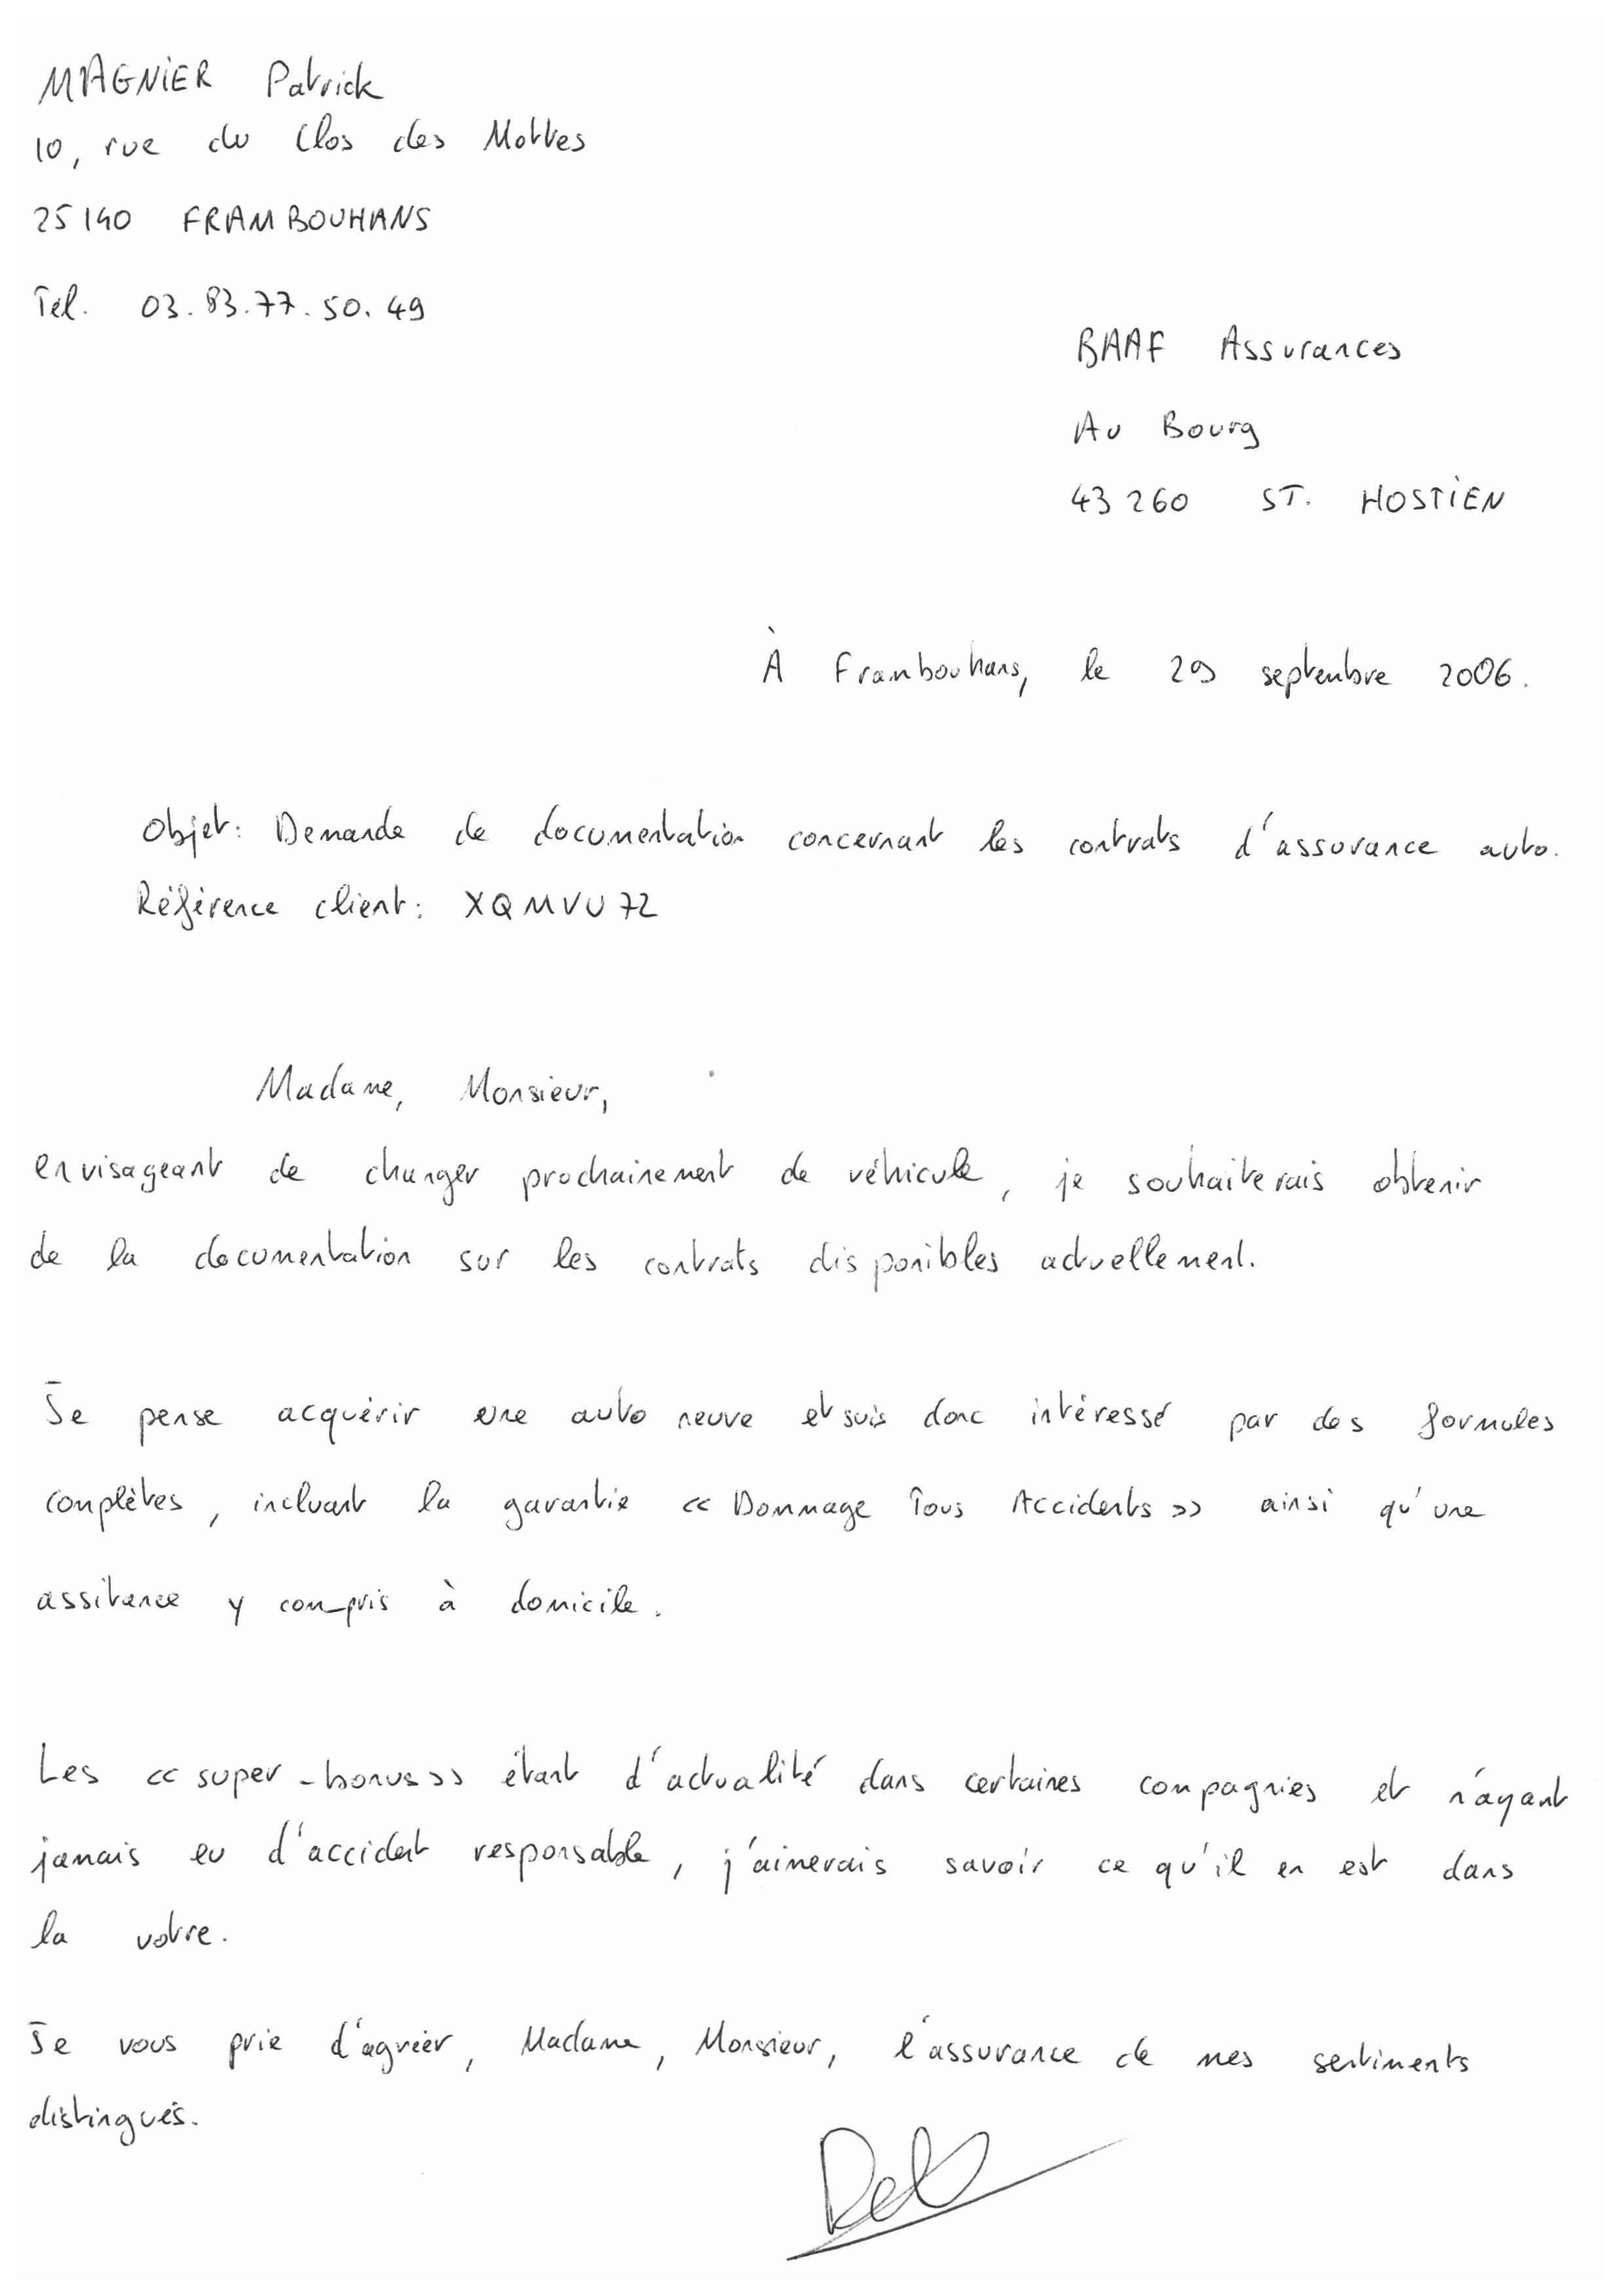 MAGNIER Patrick
10, rue du Clos des Mottes
25140 FRAMBOUHANS
Tel. 03.83.77.50.49
BAAF Assurances
Au Bourg
43260 ST. HOSTIEN
À Frambouhans, le 29 septembre 2006.
Objet: Demande de documentation concernant les contrats d'assurance auto.
Référence client: XQMVU72
Madame, Monsieur,
envisageant de changer prochainement de véhicule, je souhaiterais obtenir
de la documentation sur les contrats disponibles actuellement.
Je pense acquérir une auto neuve et suis donc intéressé par des formules
complètes, incluant la garantie << Dommage Tous Accidents >> ainsi qu'une
assitance y compris à domicile.
Les << super-bonus >> étant d'actualité dans certaines compagnies et n'ayant
jamais eu d'accident responsable, j'aimerais savoir ce qu'il en est dans
la votre.
Je vous prie d'agréer, Madame, Monsieur, l'assurance de mes sentiments
distingués.